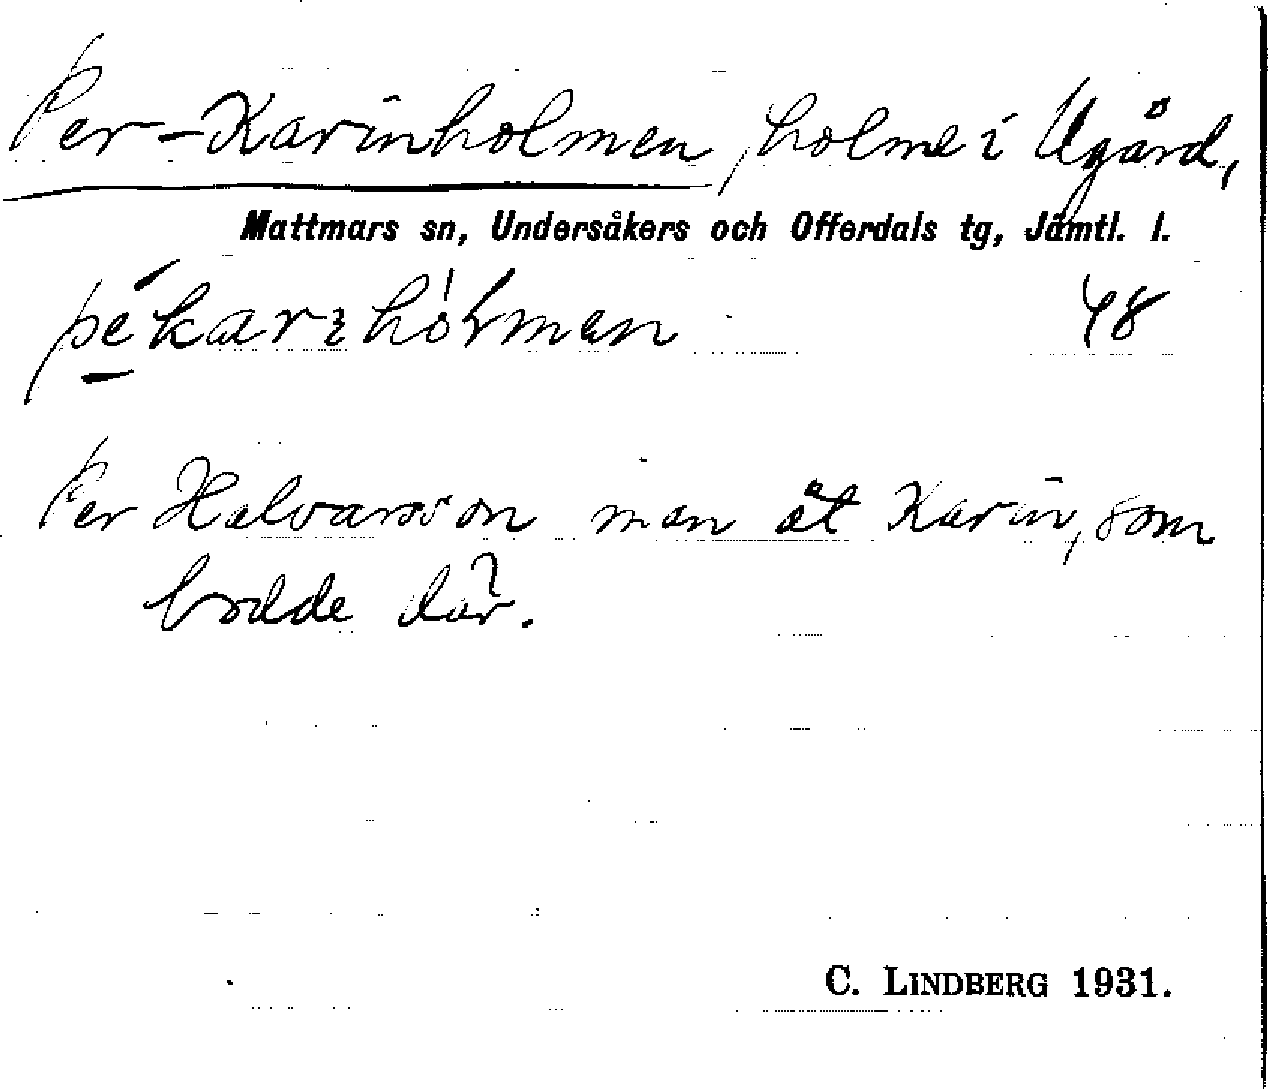 Per-Karinholmen, holme i Ugård,
Mattmars sn, Undersåkers och Offerdals tg, Jämtl. l.
48
Per Halvarsson man åt Karin, som
bodde där.
C. LINDBERG 1931.